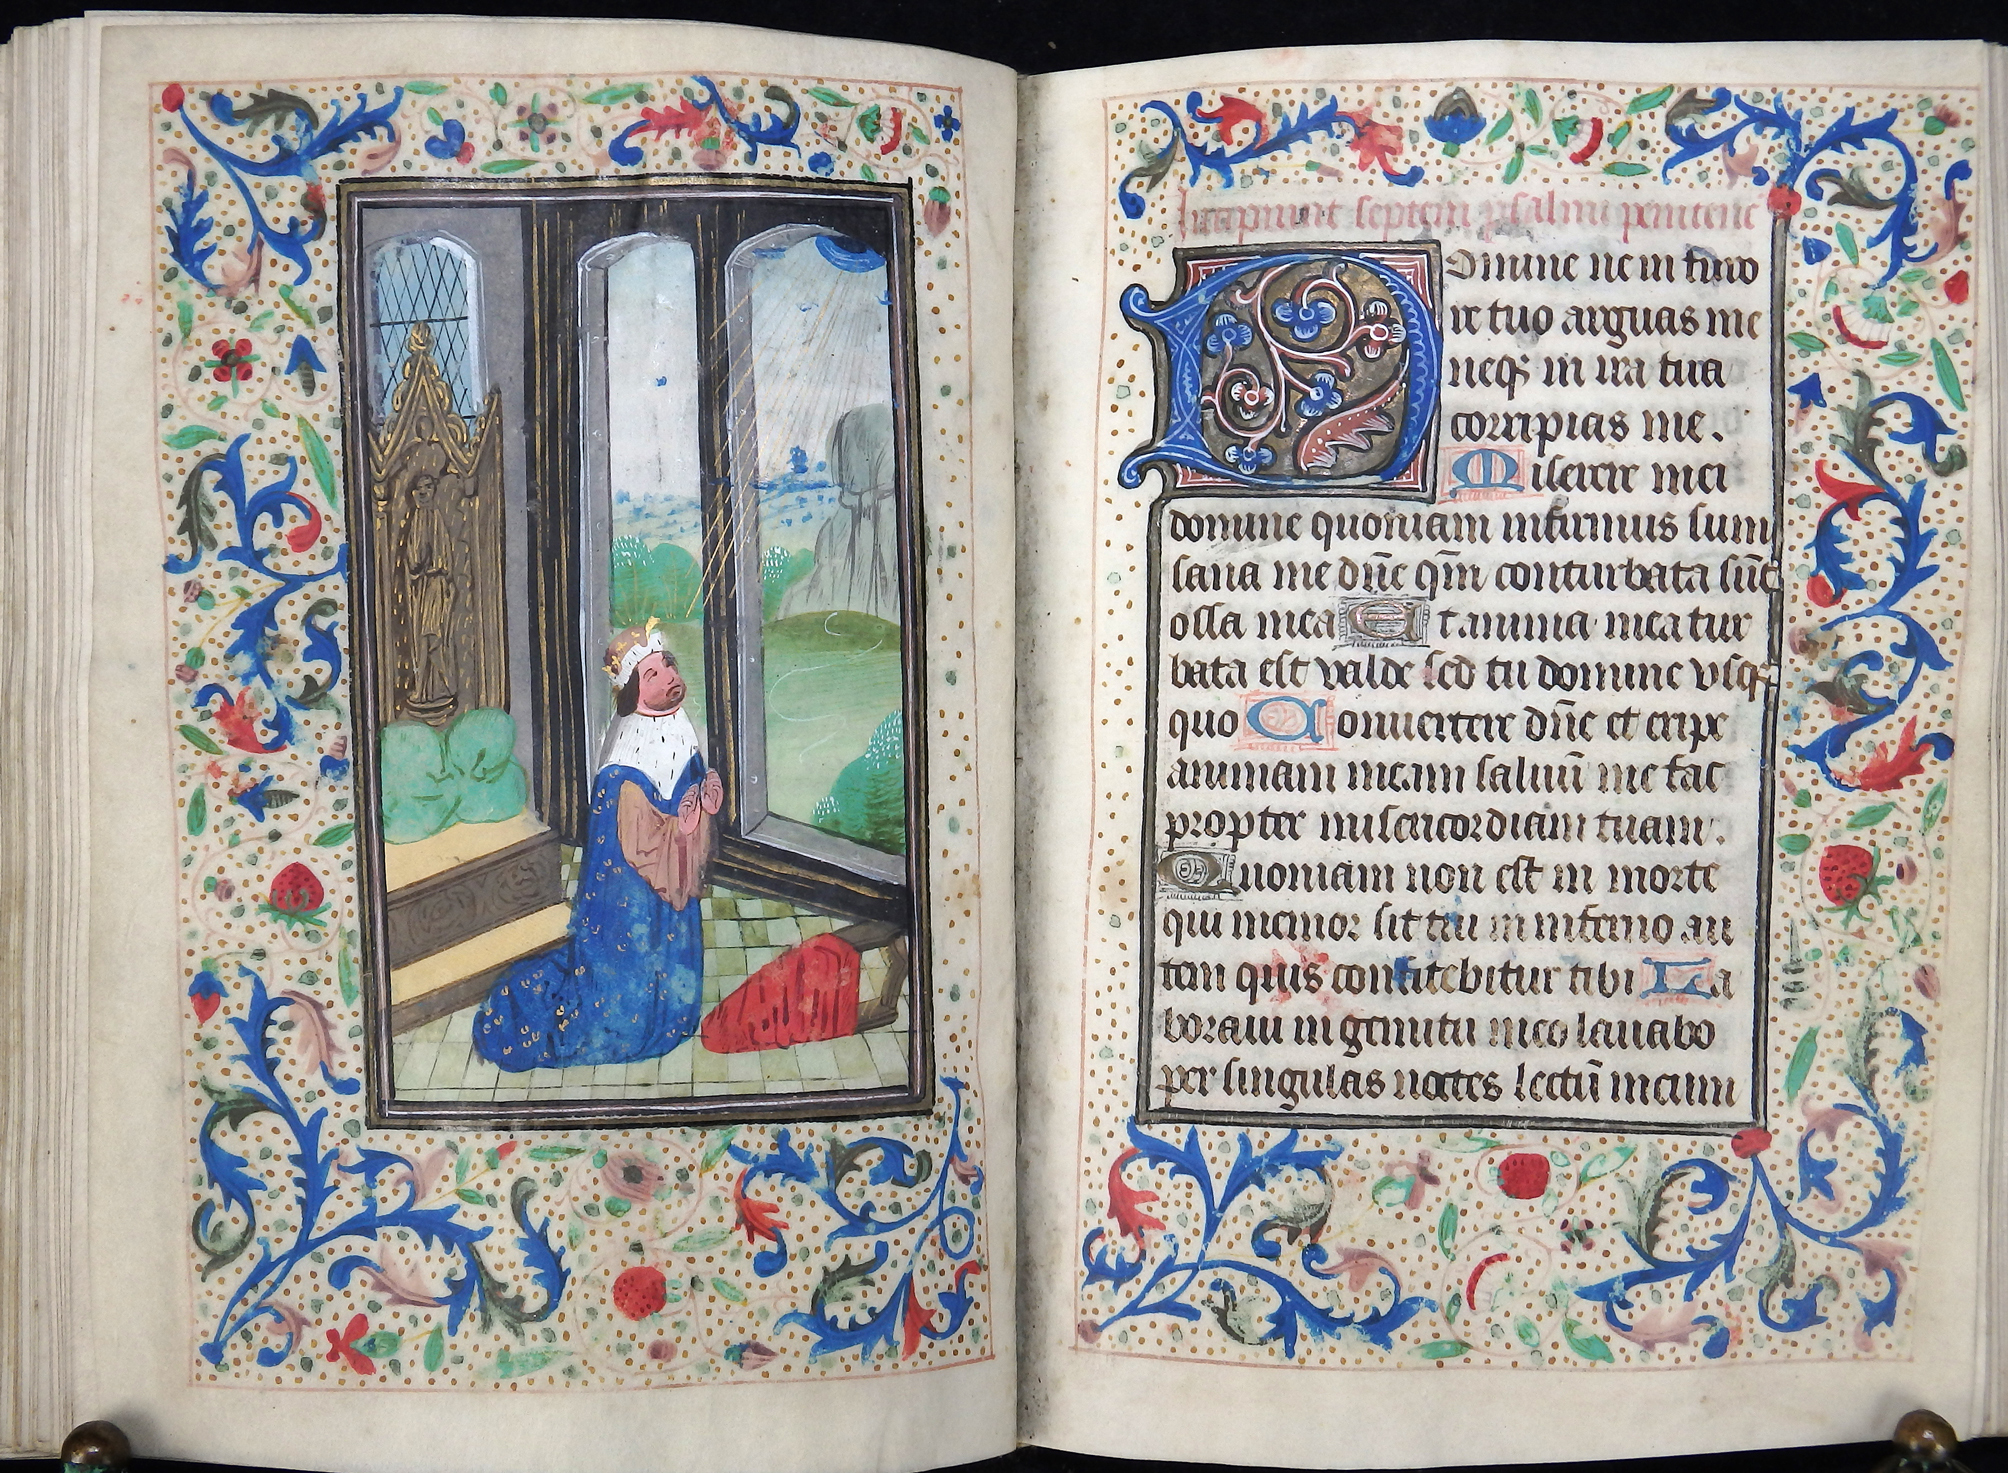 Incipiunt septem psalmi penitenc
Domine ne in furo
re tuo arguas me
neqꝫ in ira tua
corripias me.
Miserere mei
domine quoniam infirmus sum
sana me dn̄e qm̄ conturbata sūt
ossa mea Et anima mea tur
bata est valde sed tu domine vsqꝫ
quo Conuertere dn̄e et eripe
animam meam saluū me fac
propter misericordiam tuam.
Quoniam non est in morte
qui memor sit tui in inferno au
tem quis confitebitur tibi La
boraui in gemitu meo lauabo
per singulas noctes lectū meum